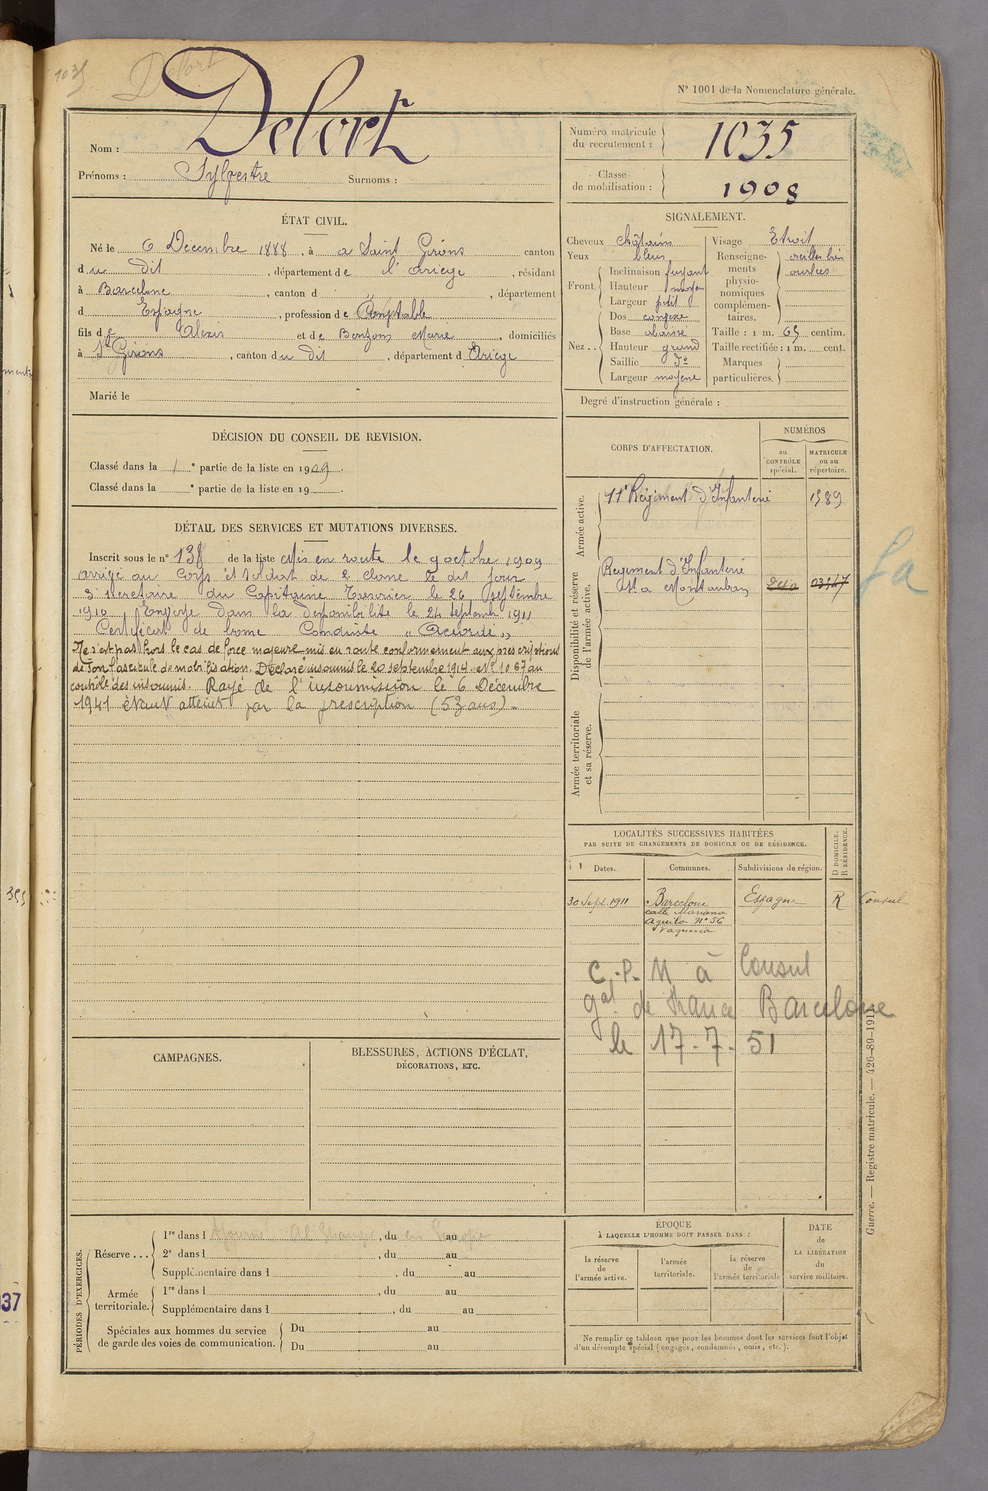 1035
Delort
N° 1001 de la Nomenclature générale.
Nom : Delort
Prénoms : Sylvestre Surnoms :
Numéro matricule du recrutement : 1035
Classe de mobilisation : 1908
ÉTAT CIVIL.
Né le 6 Décembre 1888, à a Saint Girons, canton
du dit, département de l'ariege, résidant
à Barcelone, canton d " , département
d Espagne, profession de Comptable
fils de Alexis et de Bonzom Marie, domiciliés
à St Girons, canton du dit, département d Ariege
Marié le
SIGNALEMENT.
Cheveux châtains
Yeux bleus
Front. Inclinaison fuyant
Hauteur moyen
Largeur petit
Nez.. Dos convexe
Base abaissé
Hauteur grand
Saillie do
Largeur moyene
Visage Etroit
Renseignements physionomiques complémentaires. oreilles bien ourlées
Taille : 1 m. 65 centim.
Taille rectifiée : 1 m. cent.
Marques particulières.
Degré d'instruction générale :
DÉCISION DU CONSEIL DE REVISION.
Classé dans la 1 e partie de la liste en 1909.
Classé dans la e partie de la liste en 19 .
CORPS D'AFFECTATION.
NUMÉROS
au CONTRÔLE spécial.
MATRICULE ou au répertoire.
Armée active.
11e Régiment d'Infanterie 1389
Disponibilité et réserve de l'armée active.
Régiment d'Infanterie
St a Montauban
Armée territoriale et sa réserve.
fa
DÉTAIL DES SERVICES ET MUTATIONS DIVERSES.
Inscrit sous le n° 138 de la liste Mis en route le 9 octobre 1909
arrivé au Corps et soldat de 2e classe le dit jour
Secretaire du Capitaine Tresorier le 26 septembre
1910. Envoyé dans la disponibilité le 24 septembre 1911
Certificat de bonne Conduite "Accordé"
Ne s'est pas hors le cas de force majeure mis en route conformement aux prescriptions
de son fascicule de mobilisation. Déclaré insoumis le 20 septembre 1914. N° 1067 au
contrôle des insoumis. Rayé de l'insoumission le 6 Décembre
1941 étant atteint par la prescription (53 ans).
LOCALITÉS SUCCESSIVES HABITÉES
PAR SUITE DE CHANGEMENTS DE DOMICILE OU DE RÉSIDENCE.
Dates. Communes. Subdivisions de région. D DOMICILE. R RÉSIDENCE.
30 Sept. 1911 Barcelone Espagne R Consul
calle Mariano
Aguilo N° 56
Vaqueria
C.P. M à Consul
gal de France Barcelone
le 17-7-51
CAMPAGNES.
BLESSURES, ACTIONS D'ÉCLAT,
DÉCORATIONS, ETC.
PÉRIODES D'EXERCICES.
Réserve ... 1re dans l Ajourné , du au
2e dans l , du au
Supplémentaire dans l , du au
Armée territoriale. 1re dans l , du au
Supplémentaire dans l , du au
Spéciales aux hommes du service de garde des voies de communication. Du au
Du au
ÉPOQUE
À LAQUELLE L'HOMME DOIT PASSER DANS :
la réserve de l'armée active.
l'armée territoriale.
la réserve de l'armée territoriale
DATE de LA LIBÉRATION du service militaire.
Ne remplir ce tableau que pour les hommes dont les services font l'objet
d'un décompte spécial (engagés, condamnés, omis, etc.).
Guerre. — Registre matricule. — 426-89-1911.
37